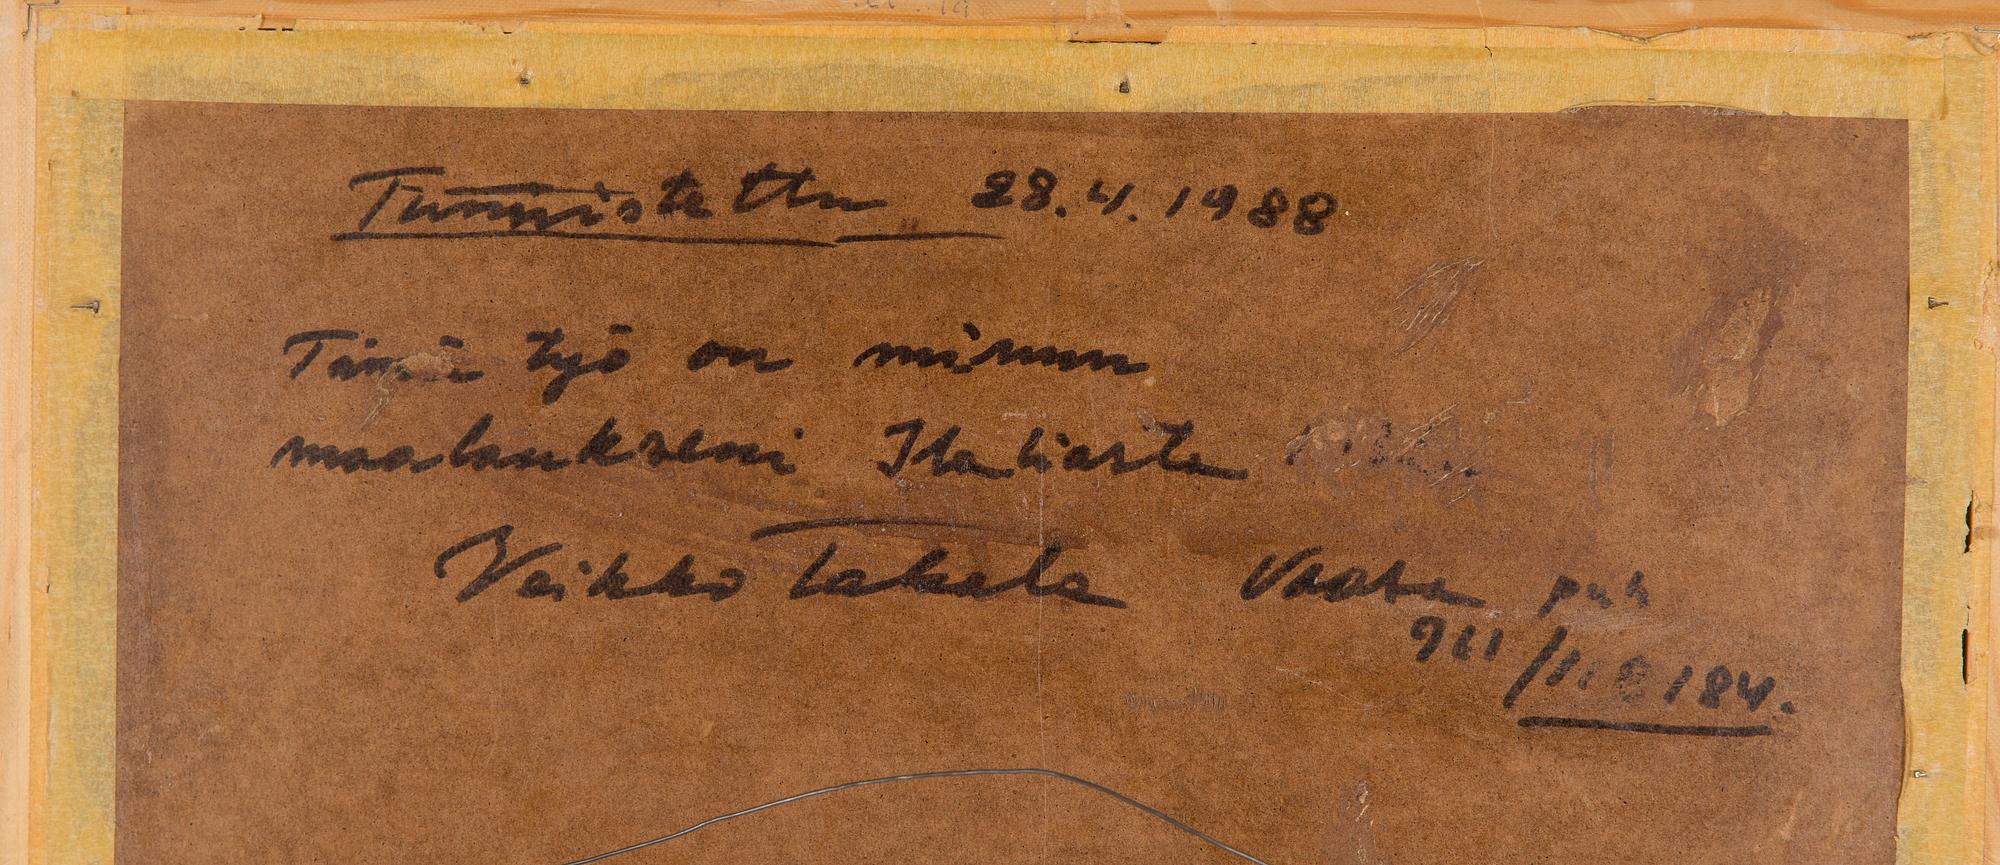 Tunnistettu 28.4.1988
Tämä työ on minun
maalaukseni Italiasta
Veikko Takala Vaasa puh
961/118184.